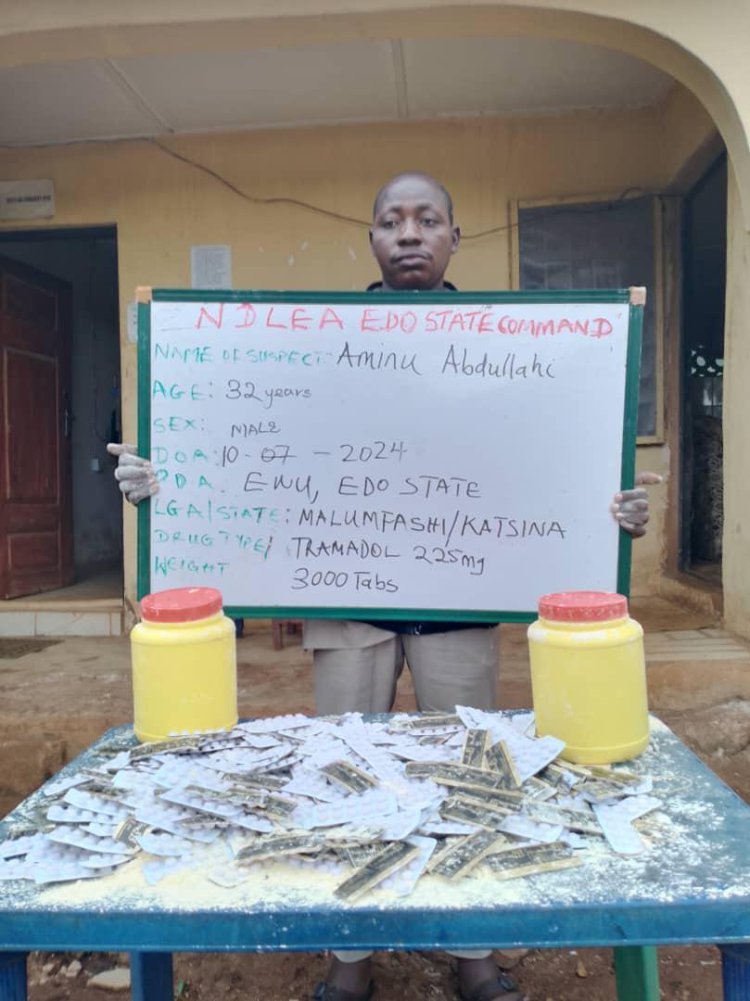 NDLEA EDO STATE COMMAND
NAME OF SUSPECT: Aminu Abdullahi
AGE: 32 years
SEX: MALE
DOA: 10-07-2024
PDA: EWU, EDO STATE
LGA/STATE: MALUMFASHI/KATSINA
DRUG TYPE/ TRAMADOL 225mg
WEIGHT 3000 Tabs